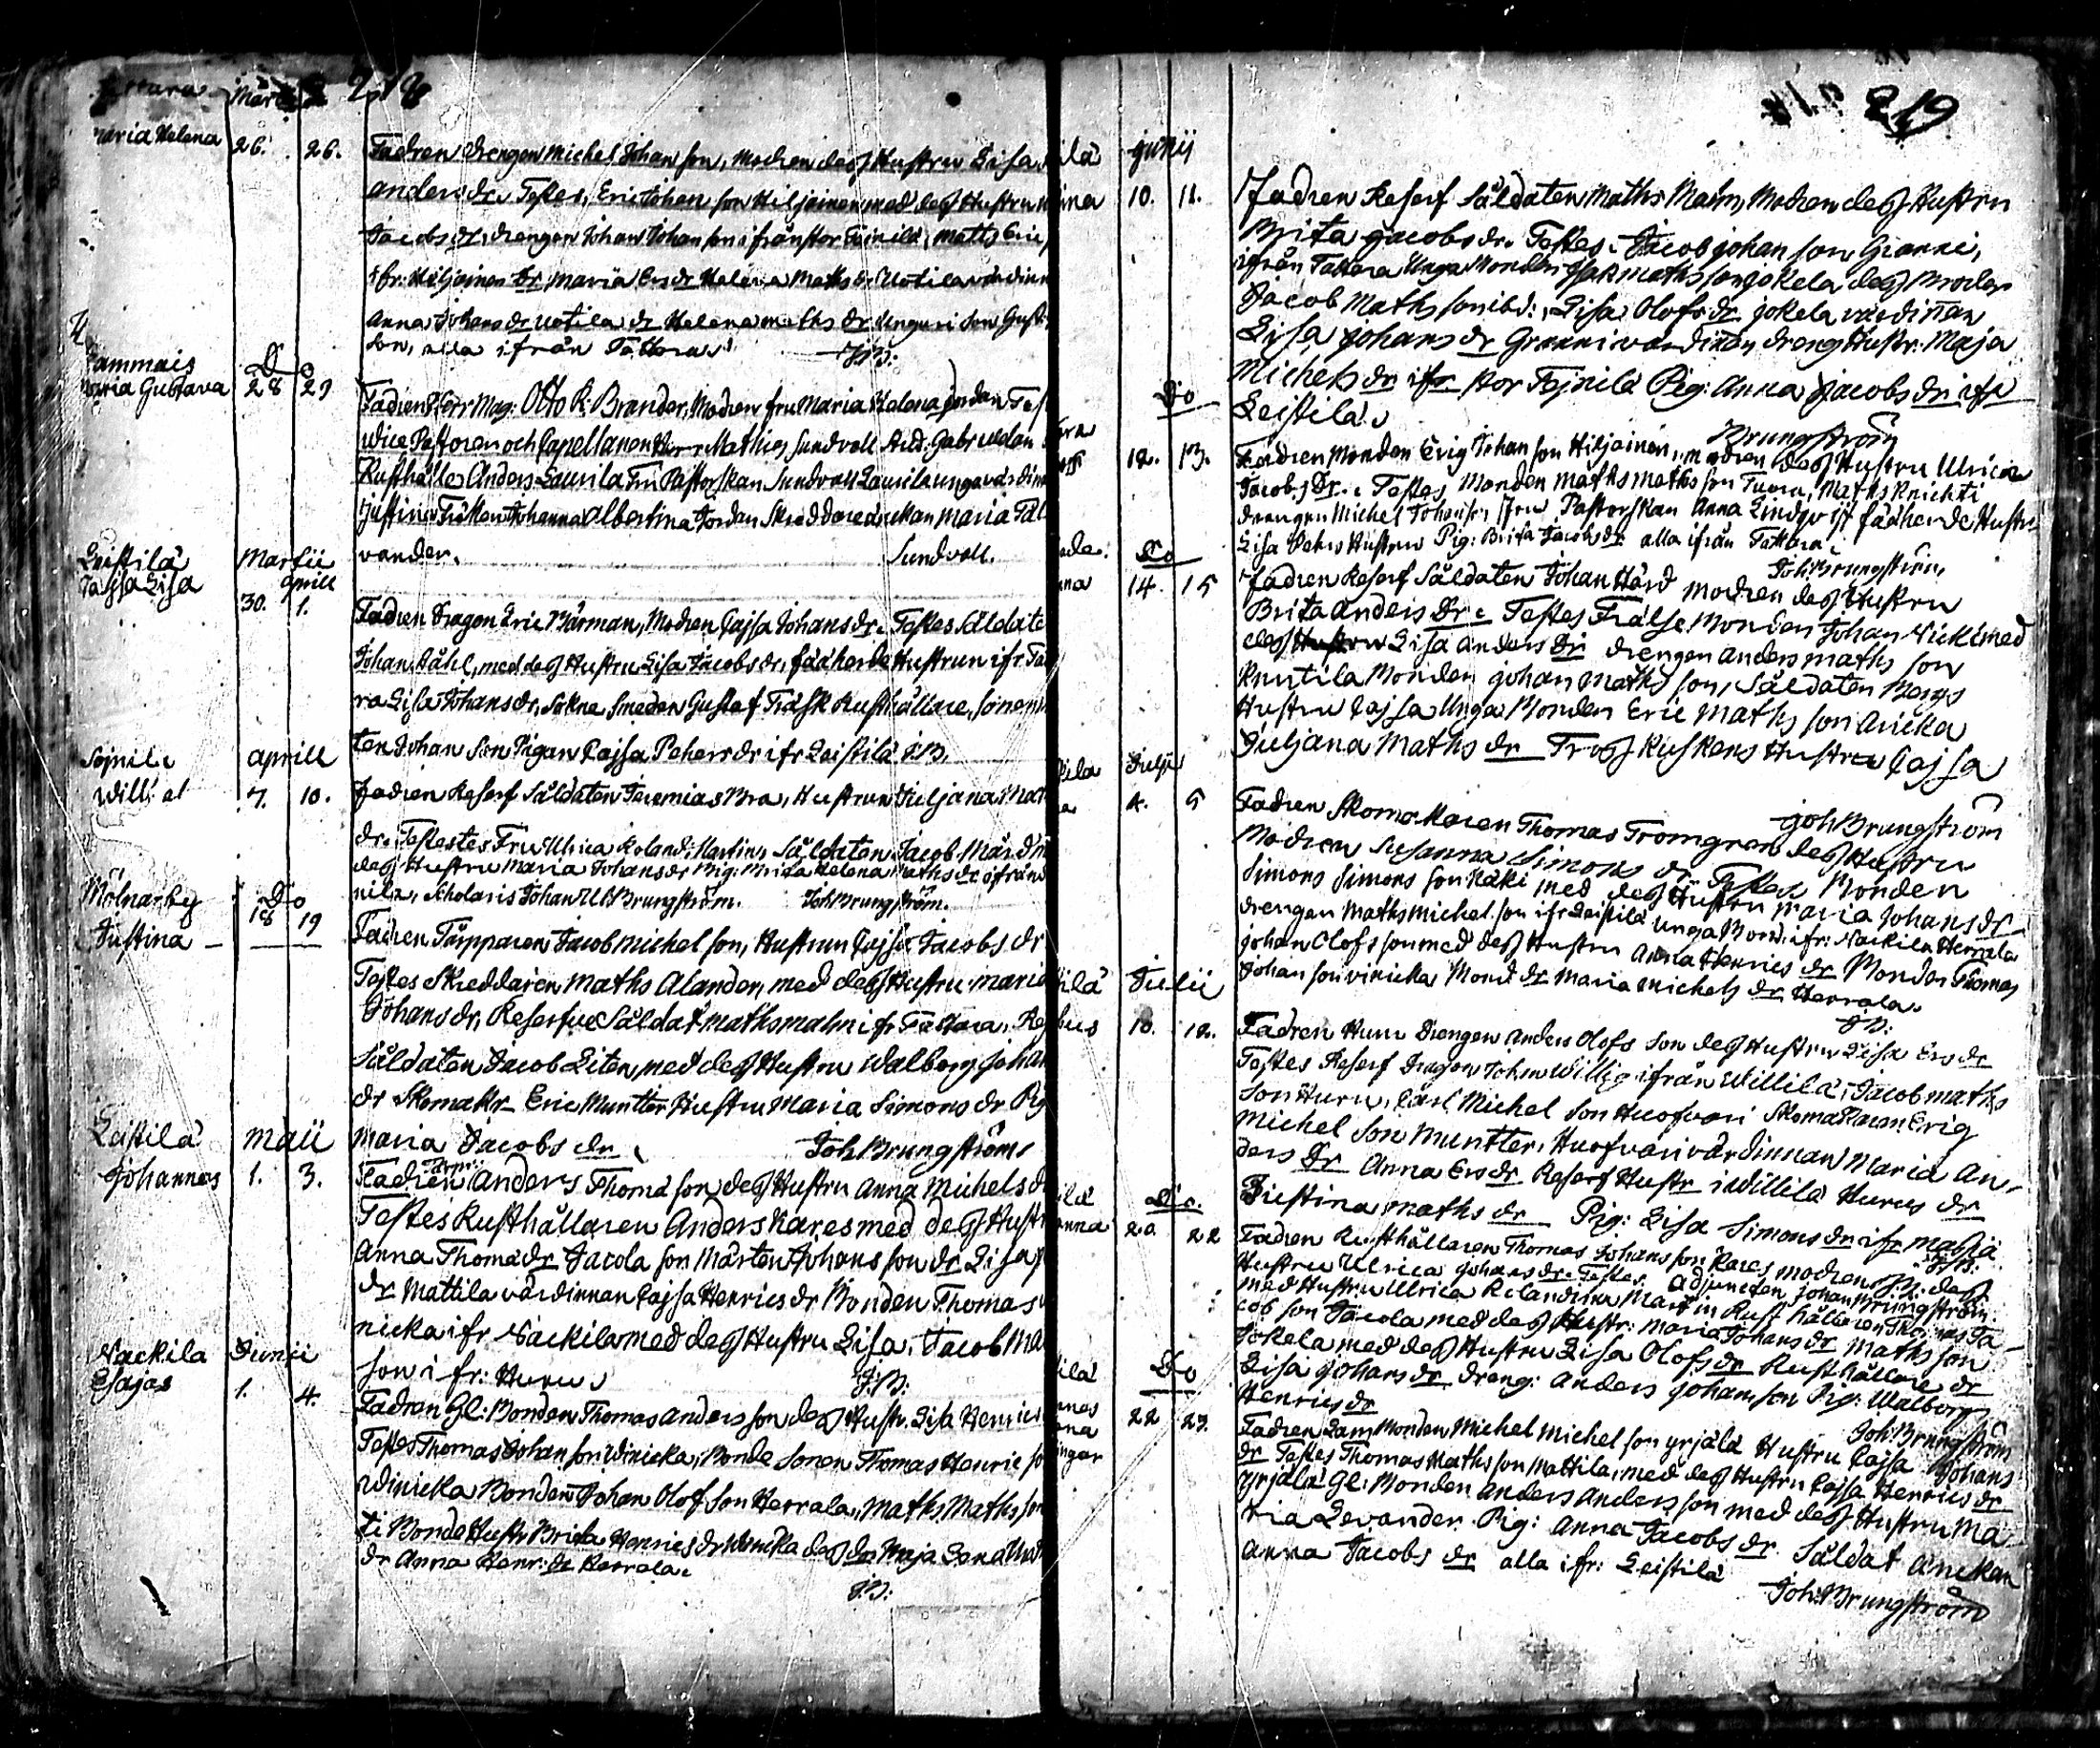 Tattara Martii 218
Maria Helena 26. 26. Fadren drengen Michel Johan son, Modren dess Hustru Lisa
anders dr. Testes, Eric Johan son Hiljainen med dess Hustru
Jacobs dr, drengen Johan Johan son ifrån stor Tojnila, Matts Eric
ifr: Hiljainen Dr Maria Ers dr Helena Maths dr Uotila värdinn
Anna Johans dr Uotila dr Helena maths dr Unguri son Gust
son, alla ifrån Tattara. J:B:
Tammais Do
Maria Gustava 28 29 Fadren Herr Mag: Otto R: Brander, Modren fru Maria Helena Jordan Test
vice Pastoren och Capellanen Herr Mathias Sundvall Aud: Gabr
Rusthålle Anders Laurila Fru Pastorskan Sundvall Laurila unga värdinn
Justina Fröken Johanna Albertina Jordan Skreddare änckan Maria
vander. Sundvall.
Leistilä Martii
Cajsa Lisa aprill
30. 1. Fadren Dragon Eric Bärman, Modren Cajsa Johans dr. Testes Såldate
Johan Ståhl, med dess Hustru Lisa Jacobs dr, fäaherde Hustrun ifr Tat
ra Lisa Johans dr, Sokne smeden Gustaf Träsk Rusthållare, sonen
ten Johan son Pigan Cajsa Pehers dr ifr Leistilä J.B.
Sojnila aprill
Will: 7. 10. Fadren Reserf Såldaten Jeremias Bra, Hustrun Juljana Mat
dr. Testes Fru Ulrica Roland: Martin, Såldaten Jacob
dess Hustru Maria Johans dr Pig: Brita Helena Maths dr ifrån
nila, Scholaris Johan Ul: Brungström. Joh Brungström.
Mölnarby Do
Justina 18 19 Fadren Törpparen Jacob Michel son, Hustrun Cajsa Jacobs dr
Testes Skreddaren Maths Alander, med dess Hustru maria
Johans dr, Reserfve Såldat maths malm ifr Tattara, Re
Såldaten Jacob Liten, med dess Hustru Walborg Johan
dr Skomakr Eric Muntter Hustru Maria Simons dr Pig
maria Jacobs dr. Joh Brungström
Leistilä Maii
Johannes 1. 3. Fadren Anders Thoma son dess Hustru Anna Michels d
Testes Rusthållaren Anders Kares med dess Hustr
Anna Thoma dr Jacola son Mårten Johans son dr Lisa
dr Mattila värdinnan Cajsa Henrics dr Bonden Thomas
nicka ifr Nackila med dess Hustru Lisa. Jacob Ma
son ifr: Huru J:B:
Nackila Junii
Esajas 1. 4. Fadren Gl: Bonden Thomas Anders son dess Hustr. Lisa Henrics
Testes Thomas Johan son Winicka, Bonde sonen Thomas Henric so
Winicka Bonden Johan Olof son Herrala, Maths Maths son
ti Bonde Hustr Brita Henrics dr Winicka dess dr Maja Lena
dr Anna Henr: dr Herrala. J:B:
219
Junij
10. 11. Fadren Reserf Såldaten Maths Malm, Modren dess Hustru
Brita Jacobs dr. Testes: Jacob Johan son Granni,
ifrån Tattara Unga Bonden Isak maths son Jokela dess Broder
Jacob Maths son ibd:, Lisa Olofs dr Jokela värdinnan
Lisa Johans dr Granni värdinnan dreng Hustr: Maja
Michels dr ifr stor Tojnila Pig: Anna Jacobs dr ifr
Leistilä. Brungström
Do
12. 13. Fadren Bonden Erig Johan son Hiljainen, modren dess Hustru Ulrica
Jacobs Dr. Testes Bonden maths maths son Tuora, Maths Knichti
drengen Michel Johanson, Fru Pastorskan Anna Lindqvist fäaherde Hustru
Lisa Pehrs Hustru Pig: Brita Jacobs dr alla ifrån Tattara.
Joh: Brungström,
Do
14. 15 Fadren Reserf Såldaten Johan Hård modren dess Hustru
Brita Anders Dr. Testes Frälse Bonden Johan Nicki med
dess Hustru Lisa Anders Dr drengen Anders maths son
Knutila Bonden Johan Maths son, Såldaten Bergs
Hustru Cajsa Unga Bonden Eric Maths son Anicka
Juljana Maths dr Tross Kuskens Hustru Cajsa
Joh Brungström
Julii
4. 5 Fadren Skomakaren Thomas Fromgren dess Hustru
Modren Susanna Simons dr. Testes Bonden
Simons Simons son Näki med dess Hustru Maria Johans dr
drengen Maths Michel son ifr Leistilä unga Bond: ifr: Nackila Herrala
Johan Olofs son med dess Hustru Anna Henrics dr Bonden Thomas
Johan son vinicka Bond dr Maria Michels dr Herrala.
J:B:
Julii
10. 12. Fadren Huru Drengen Anders Olofs son dess Hustru Lisa Ers dr
Testes Reserf Dragon Johan Willig ifrån Willilä, Jacob maths
son Huru, Carl Michel son Huofvari Skomakaren Erig
Michel son Muntter, Huofvari värdinnan Maria An-
ders Dr Anna Ers dr Reserf Hustr i Willilä Hurus dr
Justina maths dr Pig: Lisa Simons dr ifr
J:B:
Do.
20 22 Fadren Rusthållaren Thomas Johans son Kares modren dess
Hustru Ulrica Johans dr. Testes Adjuncten Johan Brungström
med Hustru Ulrica Rolandina Martin Rusthållaren Thomas Ja-
cob son Jacola med dess Hustr: Maria Johans dr Maths son
Jokela med dess Hustru Lisa Olofs dr Rusthållare dr
Lisa Johans dr Dreng: Anders Johan son Pig: Walborg
Henrics dr Joh Brungström
Do
22 23. Fadren Lam Bonden Michel Michel son yrjälä Hustru Cajsa Johans
dr Testes Thomas Maths son Mattila, med dess Hustru Cajsa Henrics dr
yrjälä Gl: Bonden Anders Anders son med dess Hustru Ma
ria Levander Pig: Anna Jacobs dr Såldat änckan
Anna Jacobs dr alla ifr: Leistilä
Joh: Brungström